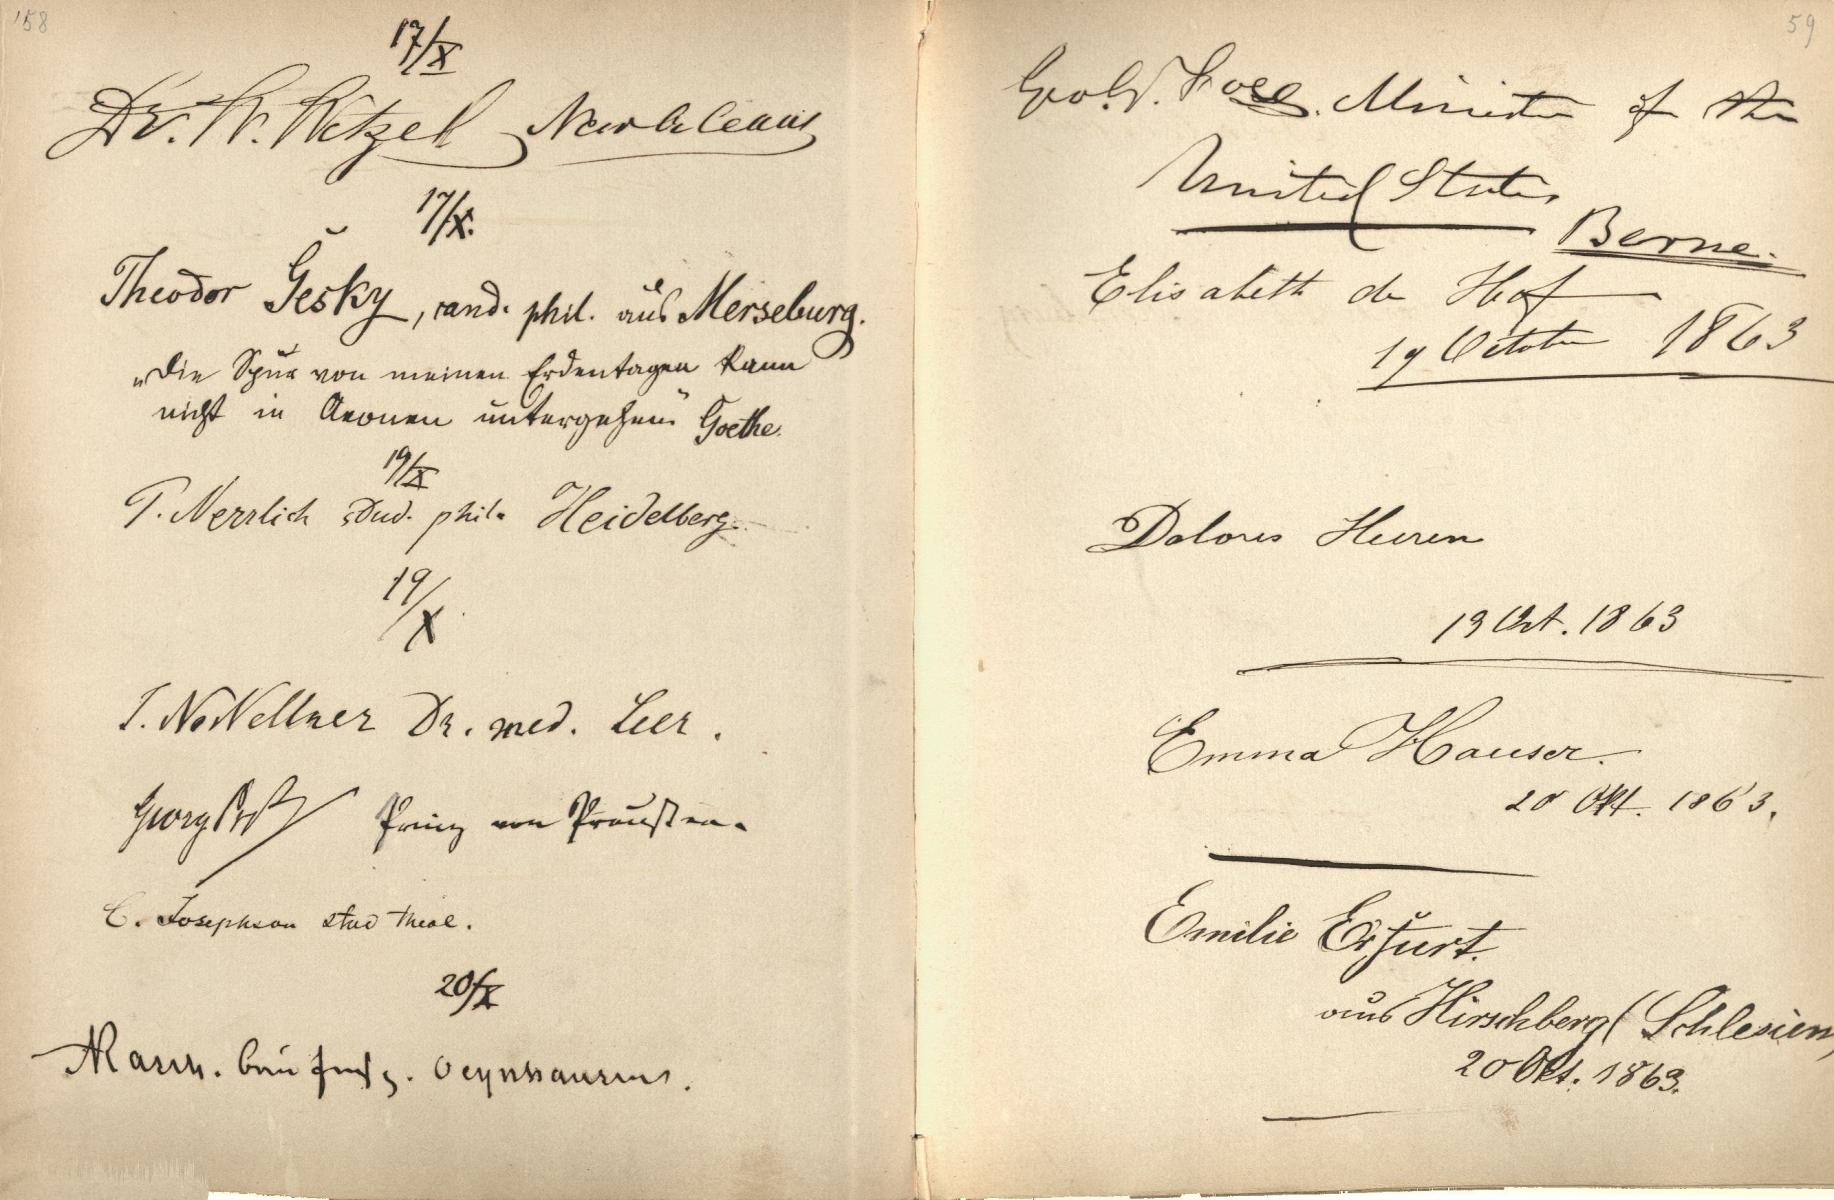 '58
17/X
Dr. W. Wetzel New Orleans
17/X.
Theodor Gesky, cand. phil. aus Merseburg.
„Die Spur von meinen Erdentagen kann
nicht in Aeonen untergehen" Goethe.
19/X
P. Nerrlich stud. phil. Heidelberg.
19/X
Dr. med. Leer.
Georg Prinz von Preußen.
C. Josephson stud theol.
20/X
59
Geo. G. Fogg. Minister of the
United States
Berne.
Elisabeth de Hof
19 October 1863
Dolores Heeren
19 Oct. 1863
Emma Hauser.
20 Okt. 1863.
Emilie Erfurt.
aus Hirschberg (Schlesien)
20 Okt. 1863.